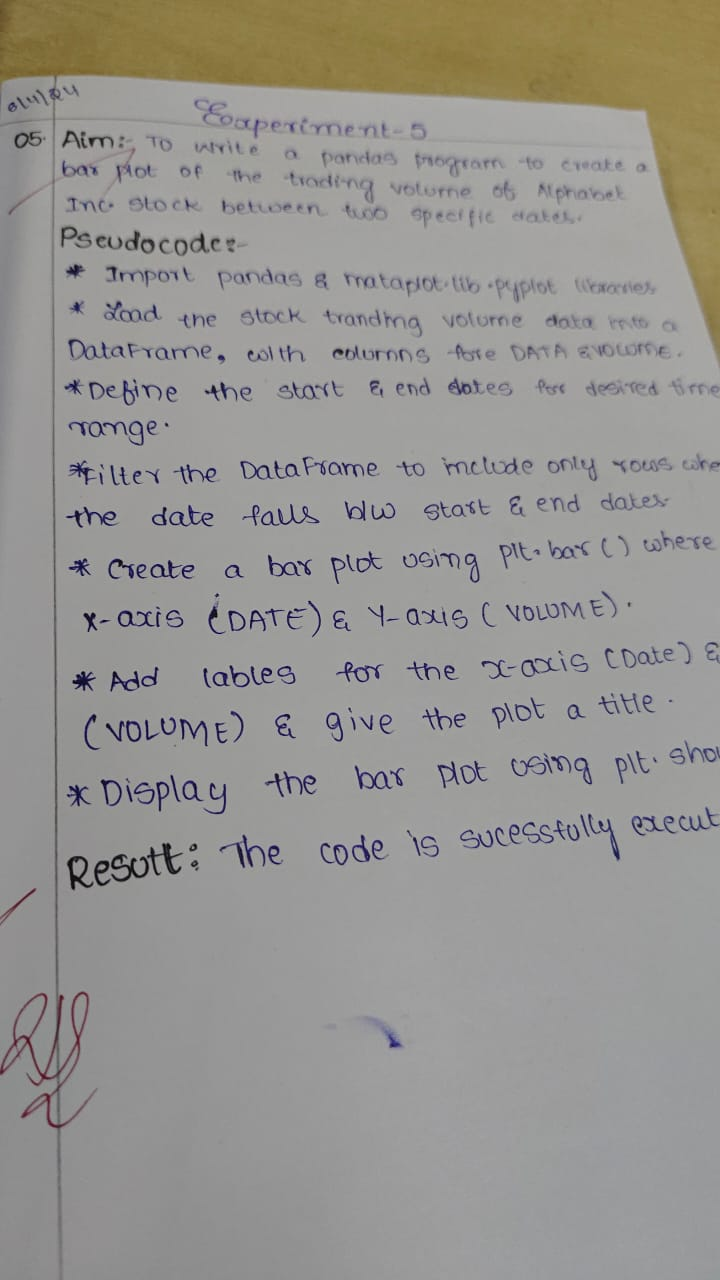 Experiment-5
05. Aim:- To write a pandas program to create a
bar plot of the trading volume of Alphabet
Inc. stock between two specific dates.
Pseudocode:-
* Import pandas & mataplot.lib.pyplot libraries
* Load the stock tranding volume data into a
DataFrame, with columns fore DATA & VOLUME.
* Define the start & end dates for desired time
range.
* Filter the DataFrame to include only rows whe
the date falls b/w start & end dates
* Create a bar plot using plt.bar() where
x-axis (DATE) & Y-axis (VOLUME).
* Add lables for the x-axis (Date) &
(VOLUME) & give the plot a title.
* Display the bar plot using plt.sho
Resutt: The code is sucessfully execut